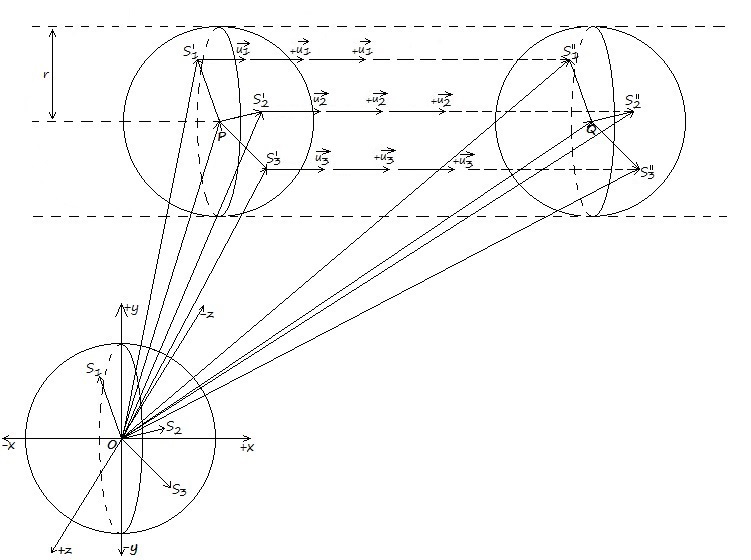 S₁' u₁ +u₁ +u₁ S₁''
r
S₂' u₂ +u₂ +u₂ S₂''
P Q
S₃' u₃ +u₃ +u₃ S₃''
+y
-z
S₁
S₂
O
-x +x
S₃
+z -y